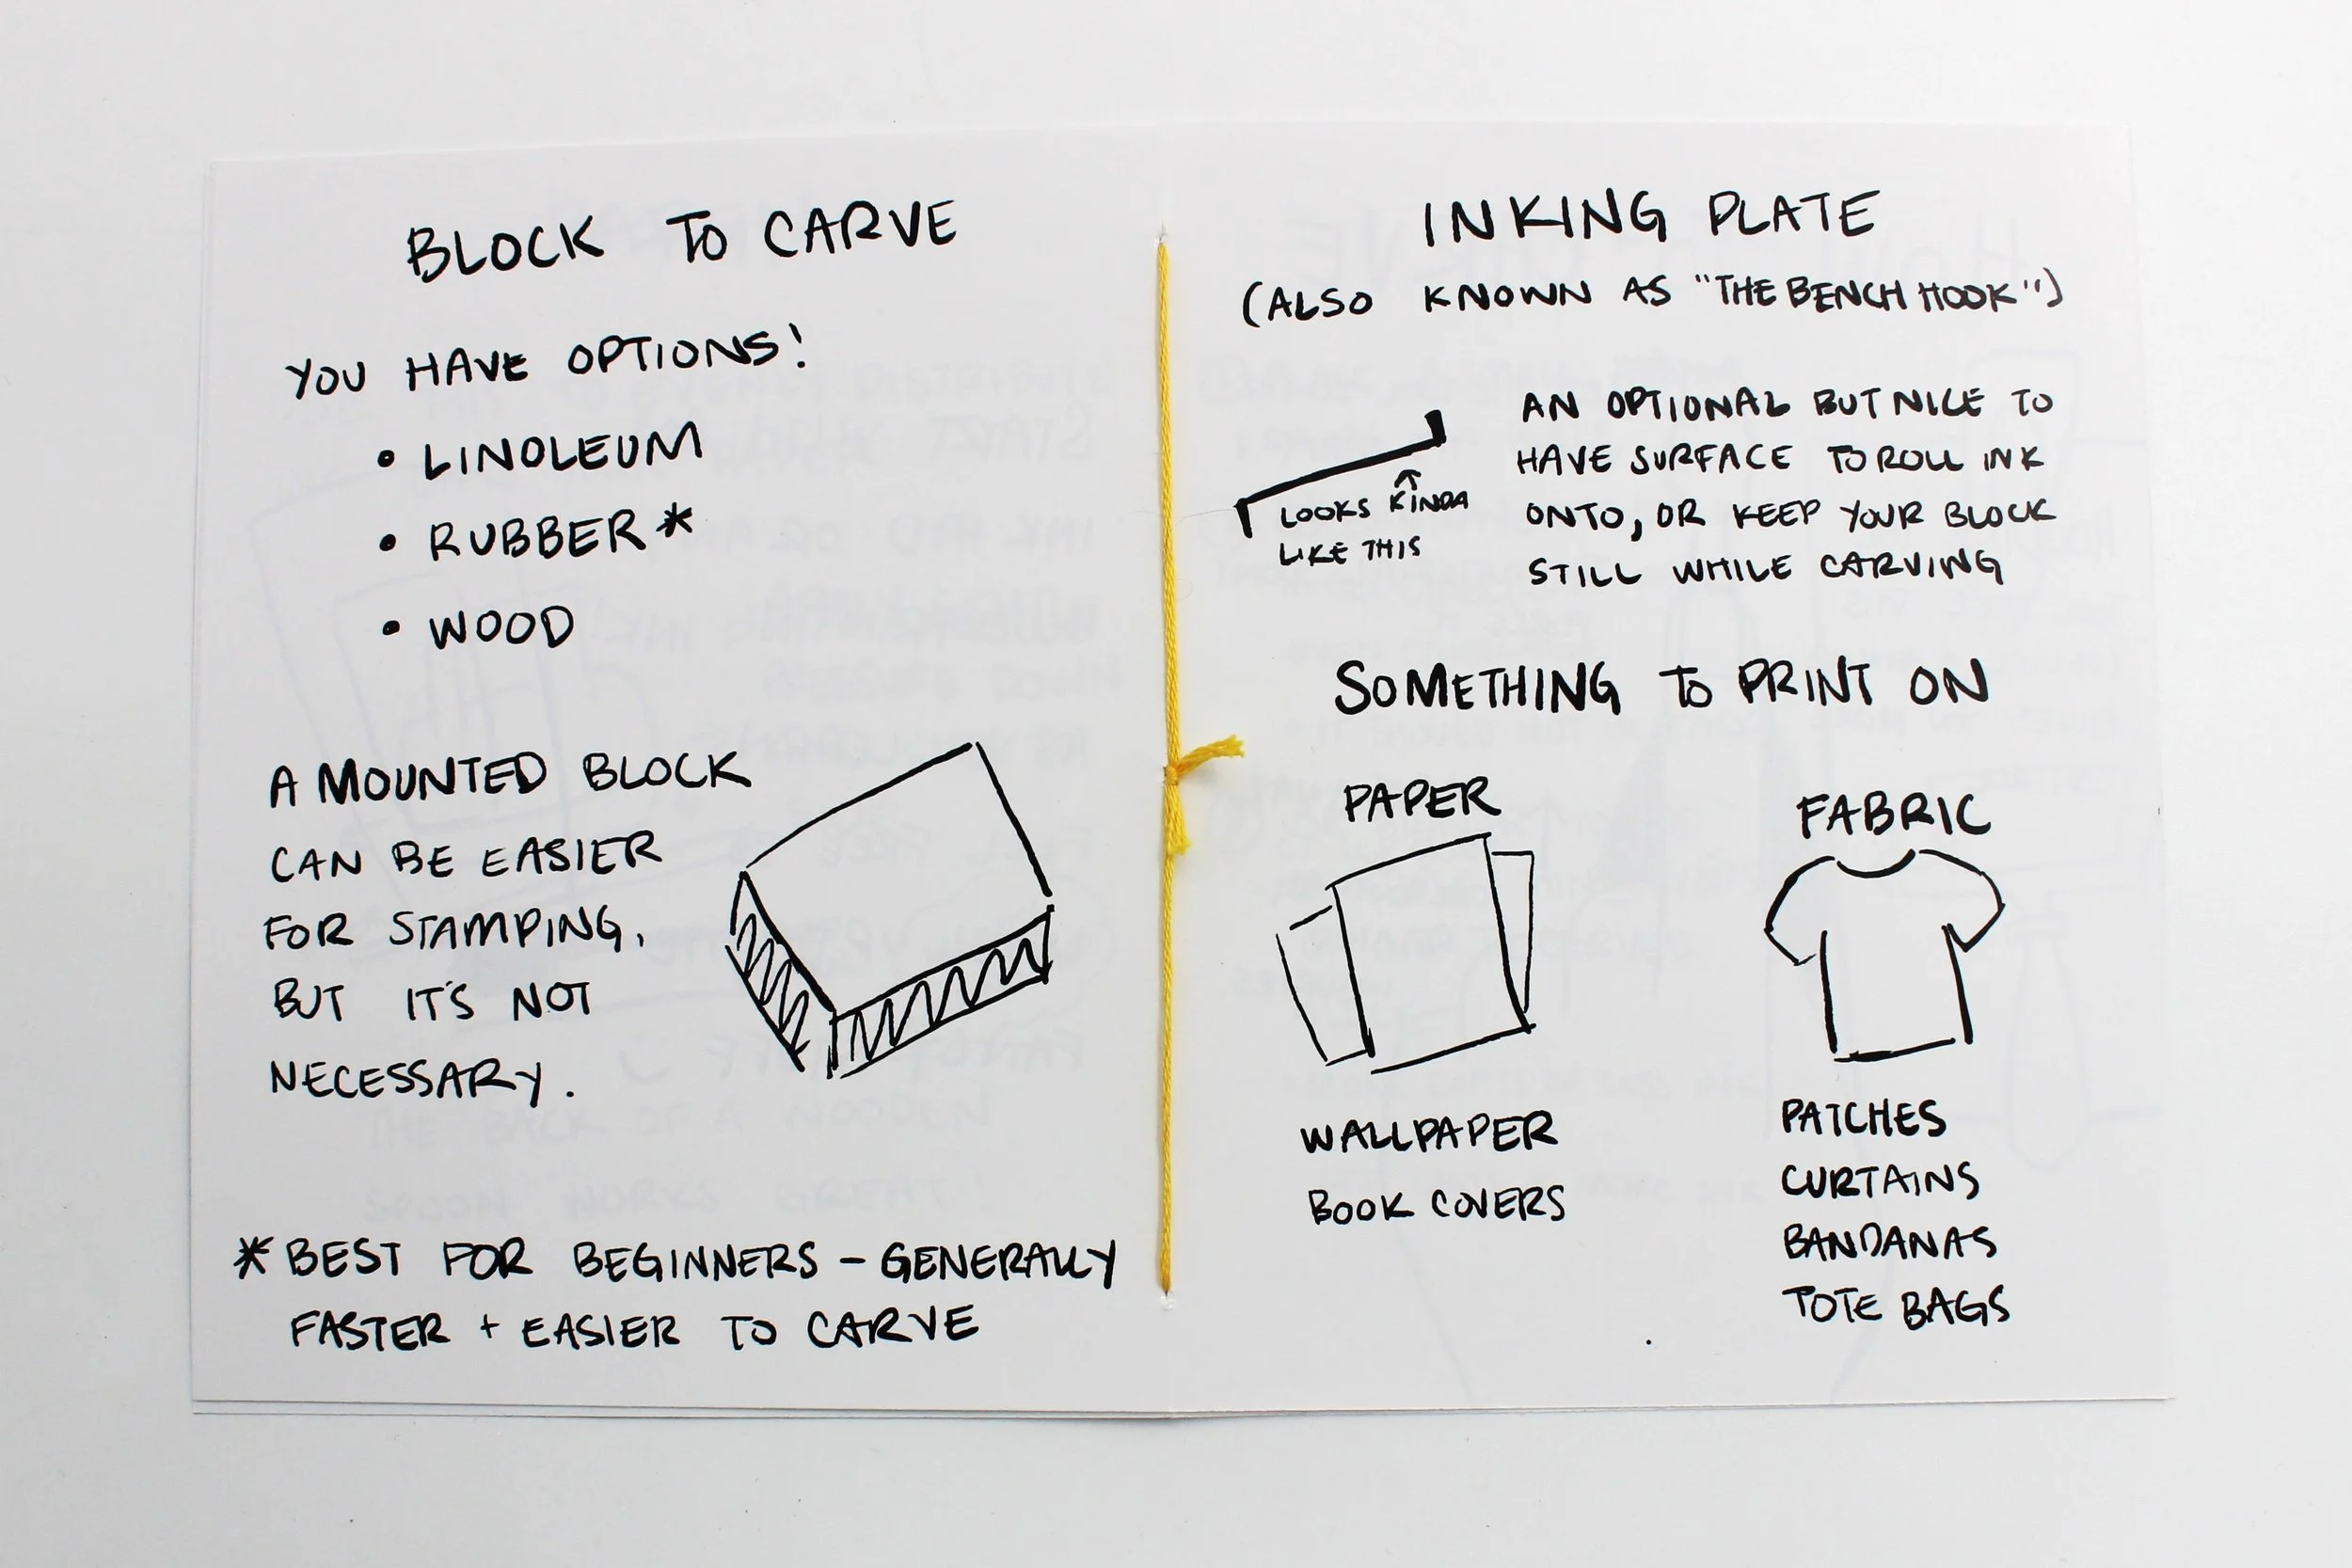 BLOCK TO CARVE
YOU HAVE OPTIONS!
• LINOLEUM
• RUBBER*
• WOOD
A MOUNTED BLOCK
CAN BE EASIER
FOR STAMPING,
BUT IT'S NOT
NECESSARY.
*BEST FOR BEGINNERS - GENERALLY
FASTER + EASIER TO CARVE
INKING PLATE
(ALSO KNOWN AS "THE BENCH HOOK")
LOOKS KINDA
LIKE THIS
AN OPTIONAL BUT NICE TO
HAVE SURFACE TO ROLL INK
ONTO, OR KEEP YOUR BLOCK
STILL WHILE CARVING
SOMETHING TO PRINT ON
PAPER
WALLPAPER
BOOK COVERS
FABRIC
PATCHES
CURTAINS
BANDANAS
TOTE BAGS